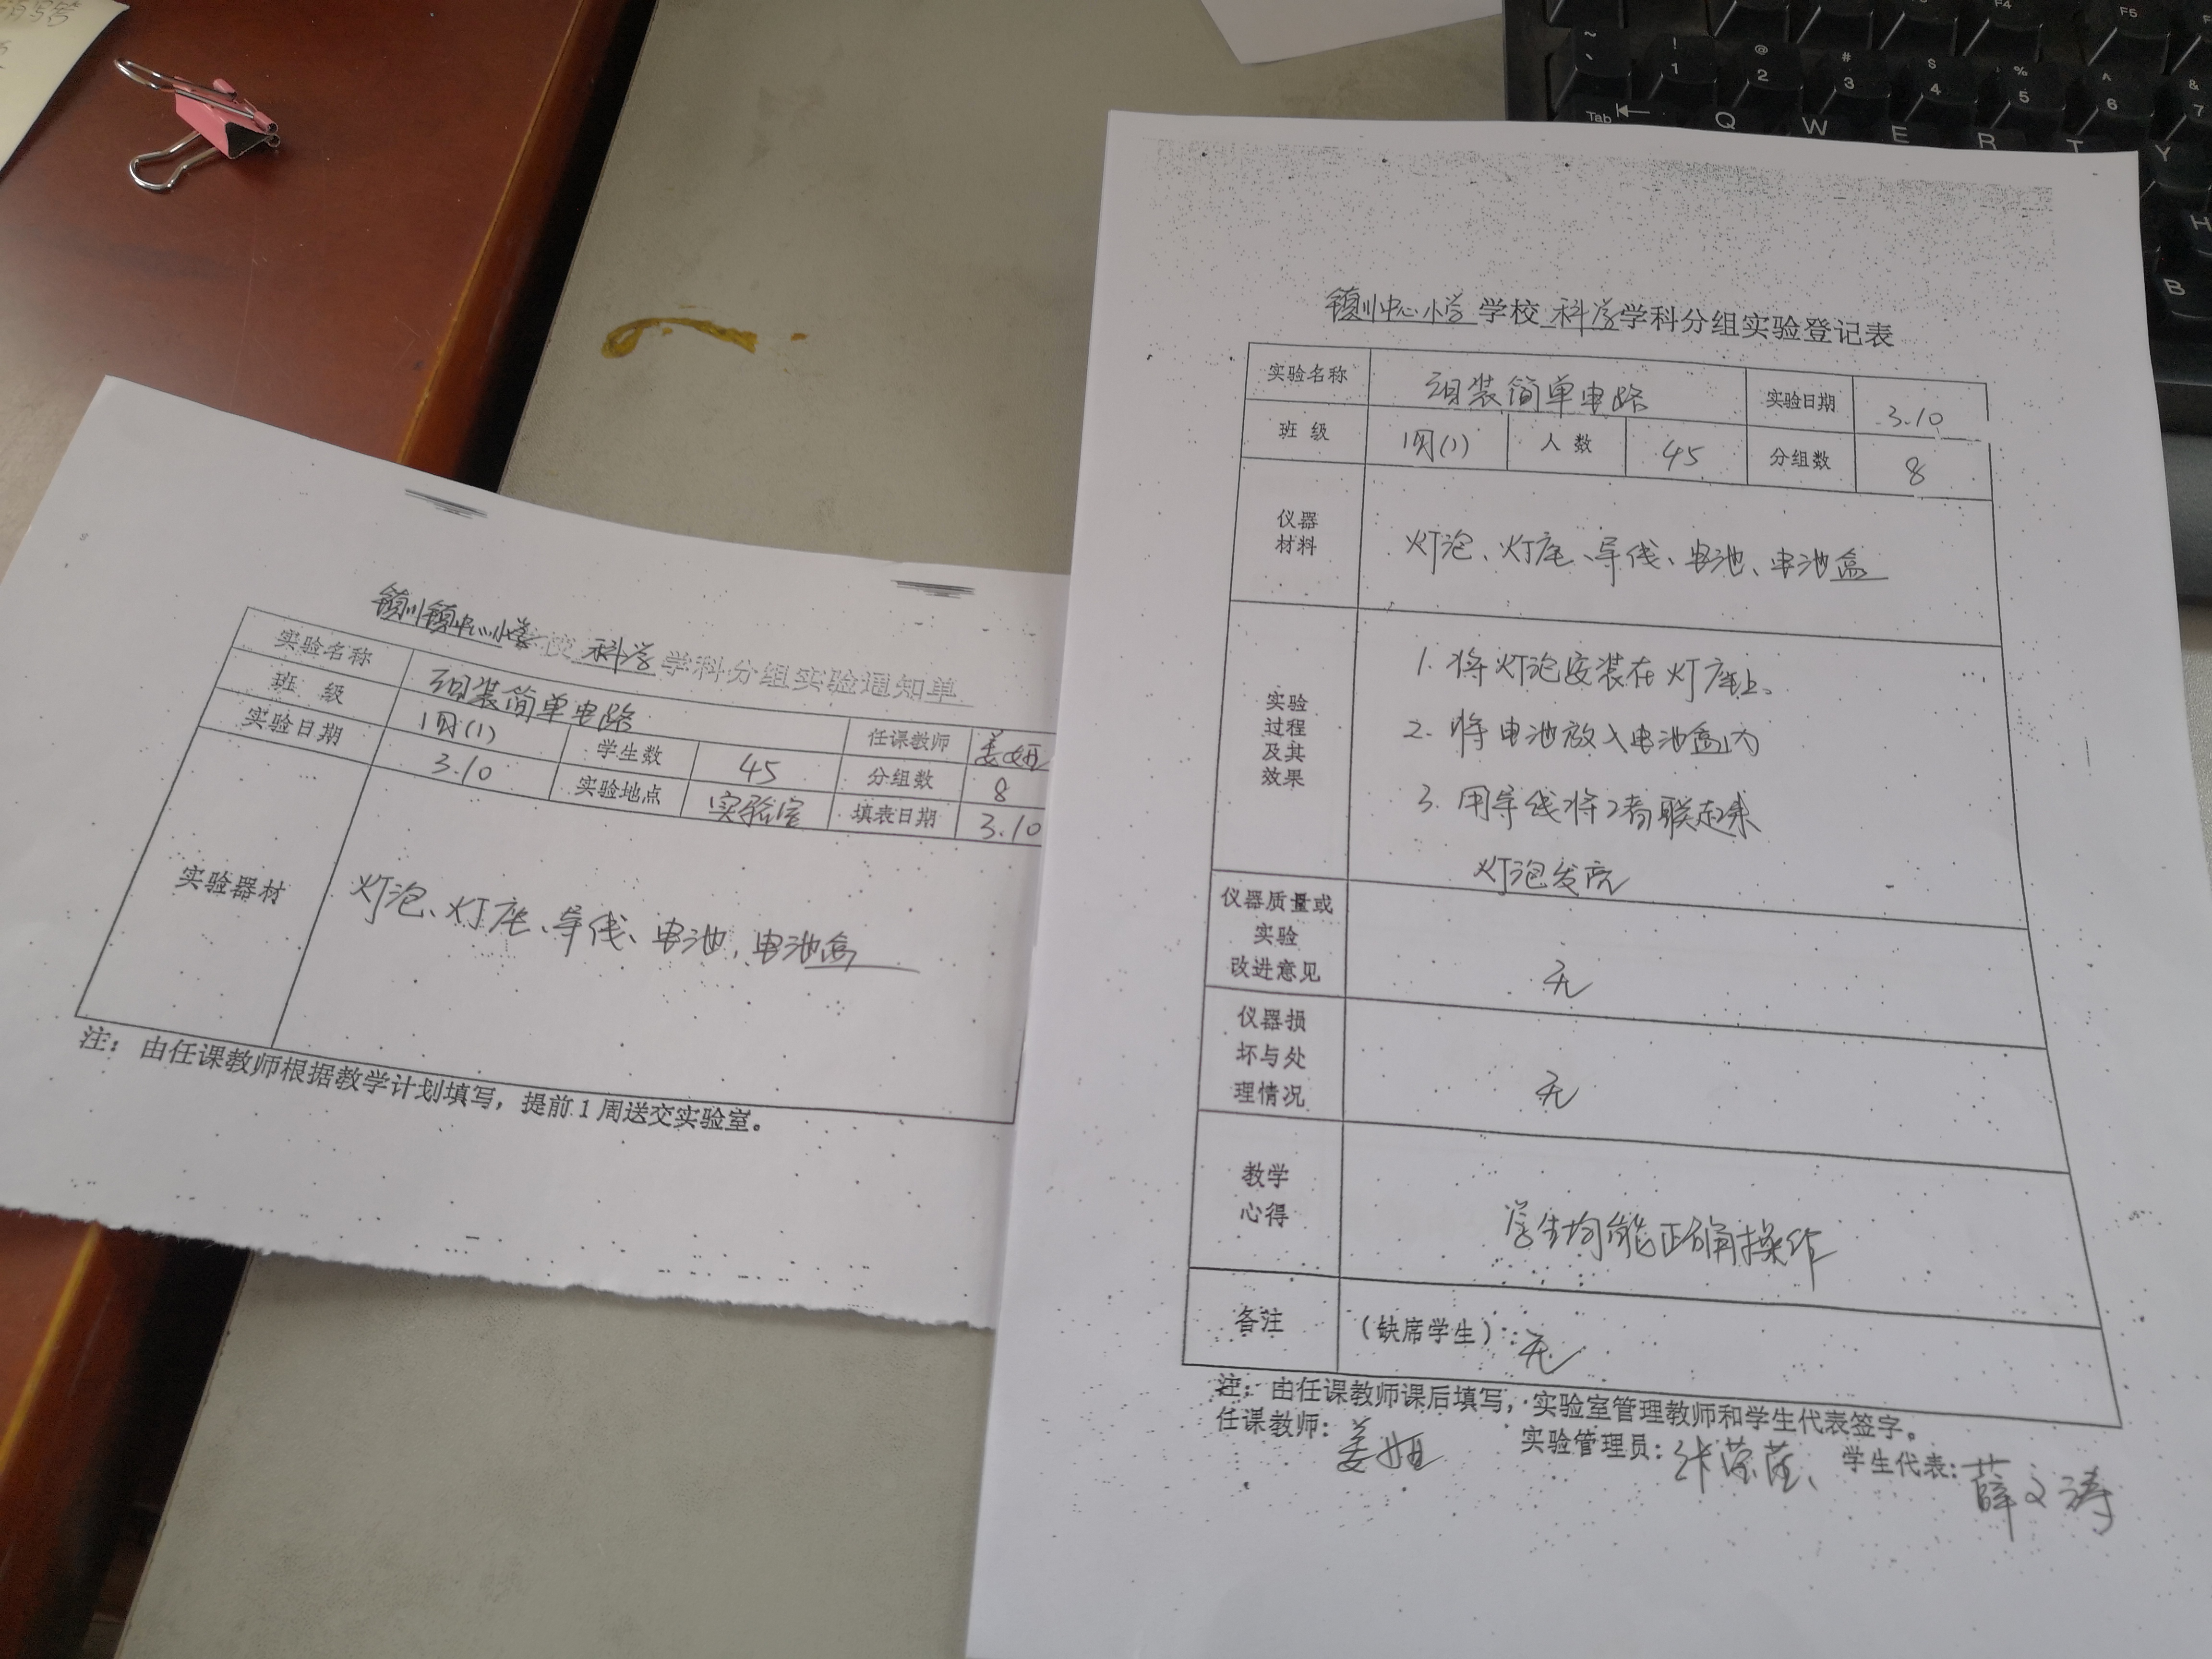 镇川镇中心小学校 科学 学科分组实验通知单
实验名称 组装简单电路 任课教师 姜妞
班 级 四(1) 学生数 45 分组数 8
实验日期 3.10 实验地点 实验室 填表日期 3.10
实验器材 灯泡、灯座、导线、电池、电池盒
注：由任课教师根据教学计划填写，提前1周送交实验室。
镇川中心小学 学校 科学 学科分组实验登记表
实验名称 组装简单电路 实验日期 3.10
班 级 四(1) 人 数 45 分组数 8
仪器
材料
灯泡、灯座、导线、电池、电池盒
实验
过程
及其
效果
1. 将灯泡安装在灯座上、
2. 将电池放入电池盒内
3. 用导线将2者联起来
灯泡发亮
仪器质量或
实验
改进意见
无
仪器损
坏与处
理情况
无
教学
心得
学生均能正确操作
备注 (缺席学生)：无
注：由任课教师课后填写，实验室管理教师和学生代表签字。
任课教师：姜妞 实验管理员： 学生代表：薛文涛
~ ` ! 1 @ 2 # 3 $ 4 % 5 ^ 6 & 7
F4 F5
Tab Q W E R T Y
H
B